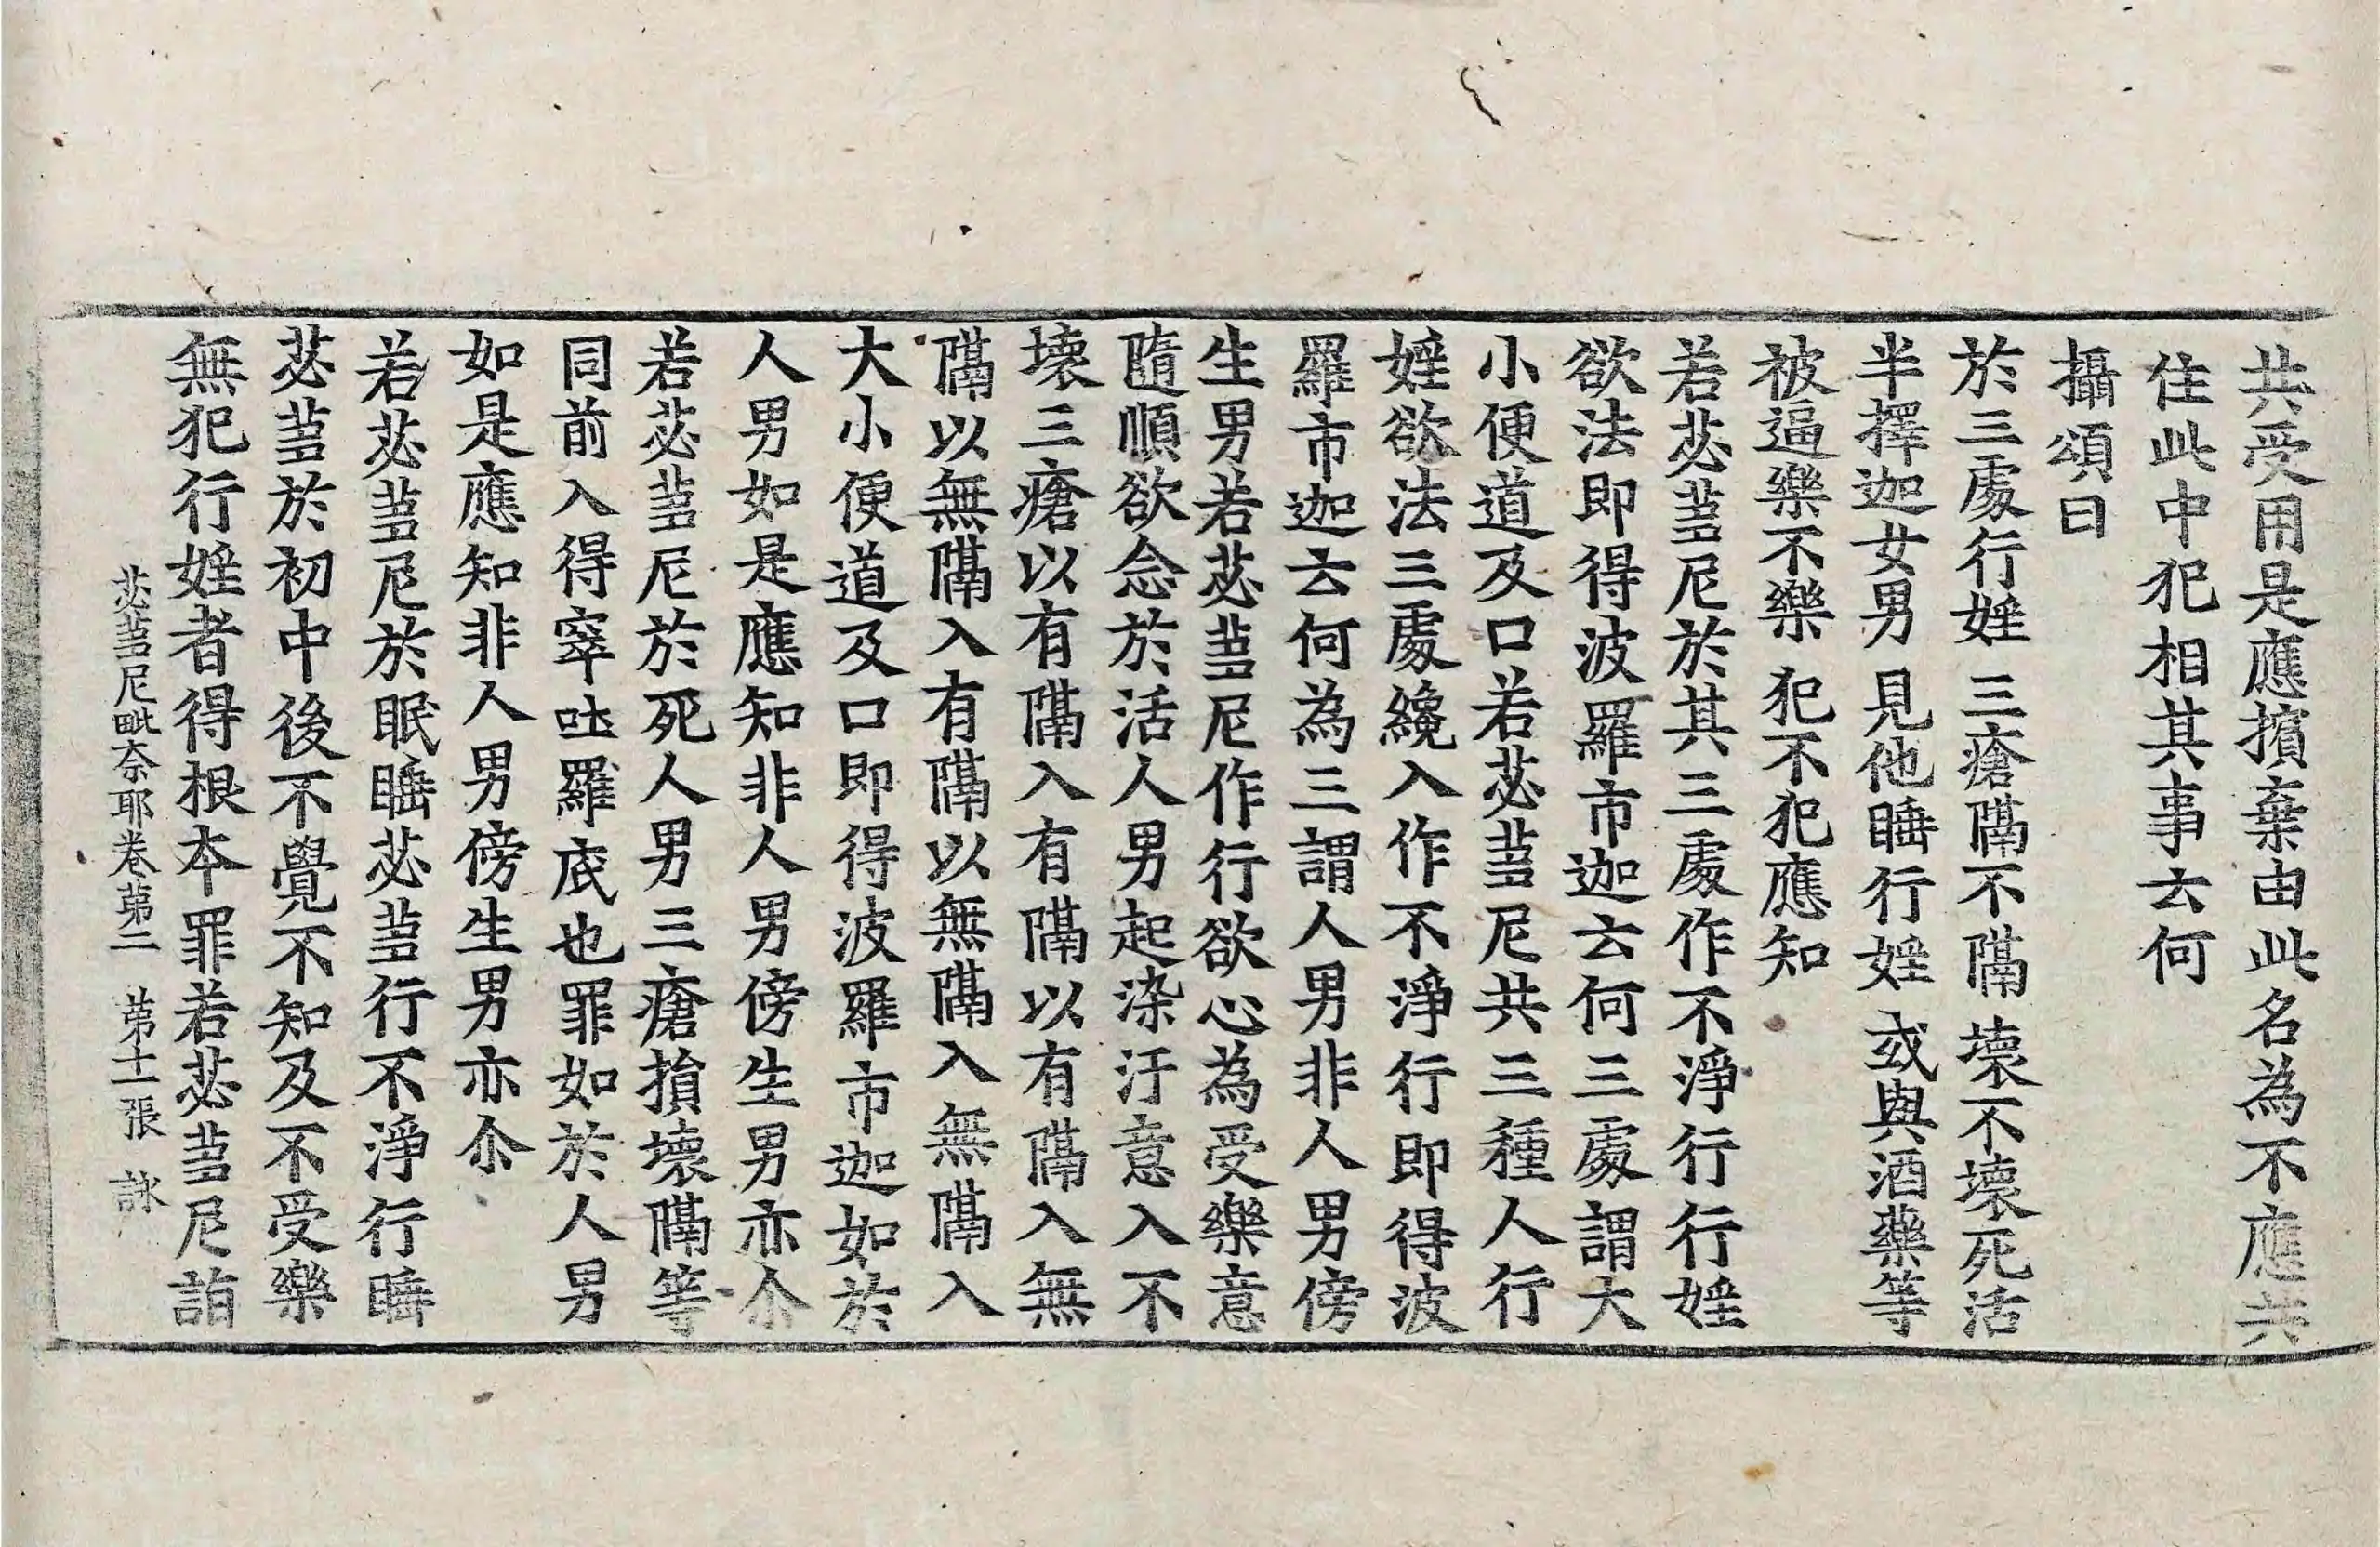 共受用是應擯棄由此名為不應共
住此中犯相其事云何
攝頌曰
於三處行婬 三瘡隔不隔 壞不壞死活
半擇迦女男 見他睡行婬 或與酒藥等
被逼樂不樂 犯不犯應知
若苾蒭尼於其三處作不淨行行婬
欲法即得波羅市迦云何三處謂大
小便道及口若苾蒭尼共三種人行
婬欲法三處纔入作不淨行即得波
羅市迦云何為三謂人男非人男傍
生男若苾蒭尼作行欲心為受樂意
隨順欲念於活人男起染汙意入不
壞三瘡以有隔入有隔以有隔入無
隔以無隔入有隔以無隔入無隔入
大小便道及口即得波羅市迦如於
人男如是應知非人男傍生男亦尒
若苾蒭尼於死人男三瘡損壞隔等
同前入得窣吐羅底也罪如於人男
如是應知非人男傍生男亦尒
若苾蒭尼於眠睡苾蒭行不淨行睡
苾蒭於初中後不覺不知及不受樂
無犯行婬者得根本罪若苾蒭尼詣
苾蒭尼毗奈耶卷第二 第十二張 詠